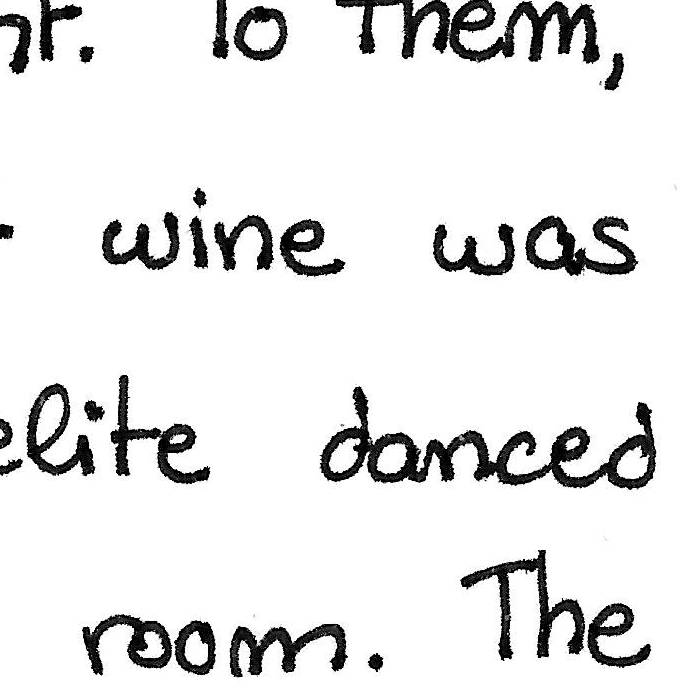 To them,
wine was
elite danced
room. The